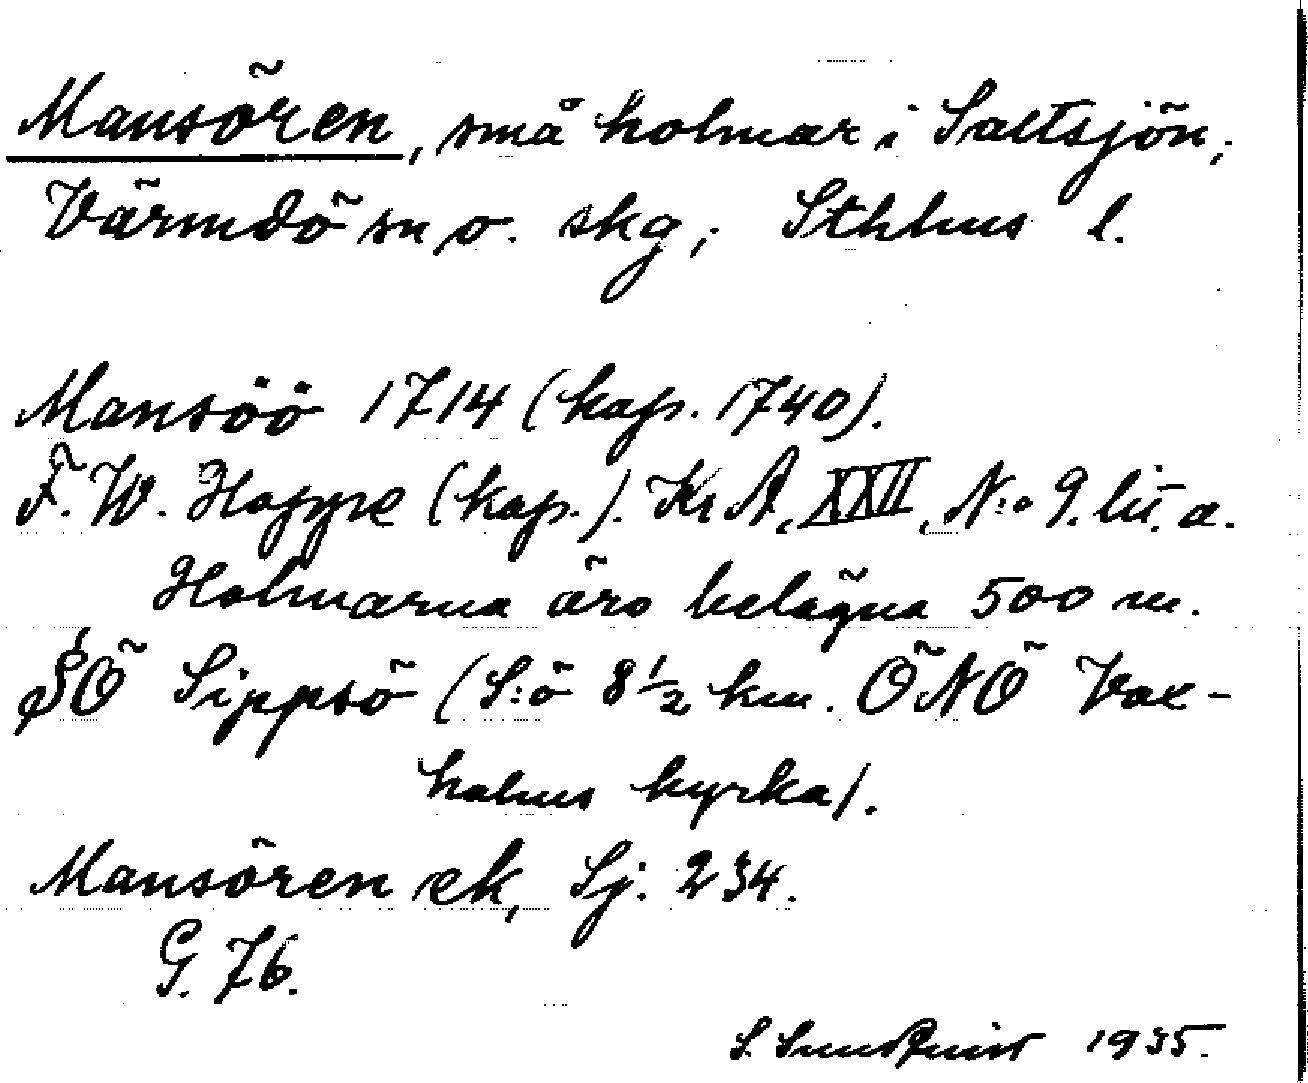 Mansören, små holmar i Saltsjön,
Värmdö sn, o. skg, Sthlms l.
Mansöö 1714 (kap. 1740).
F. W. Hoppe (kap.). Kr A, XXII, N:o 9. lit. a.
Holmarna äro belägna 500 m.
SÖ Sippsö (S:ö 8 1/2 km. ÖNÖ Vax-
holms kyrka).
Mansören ek, Sj. 234.
G. 76.
S. Sundquist 1935.